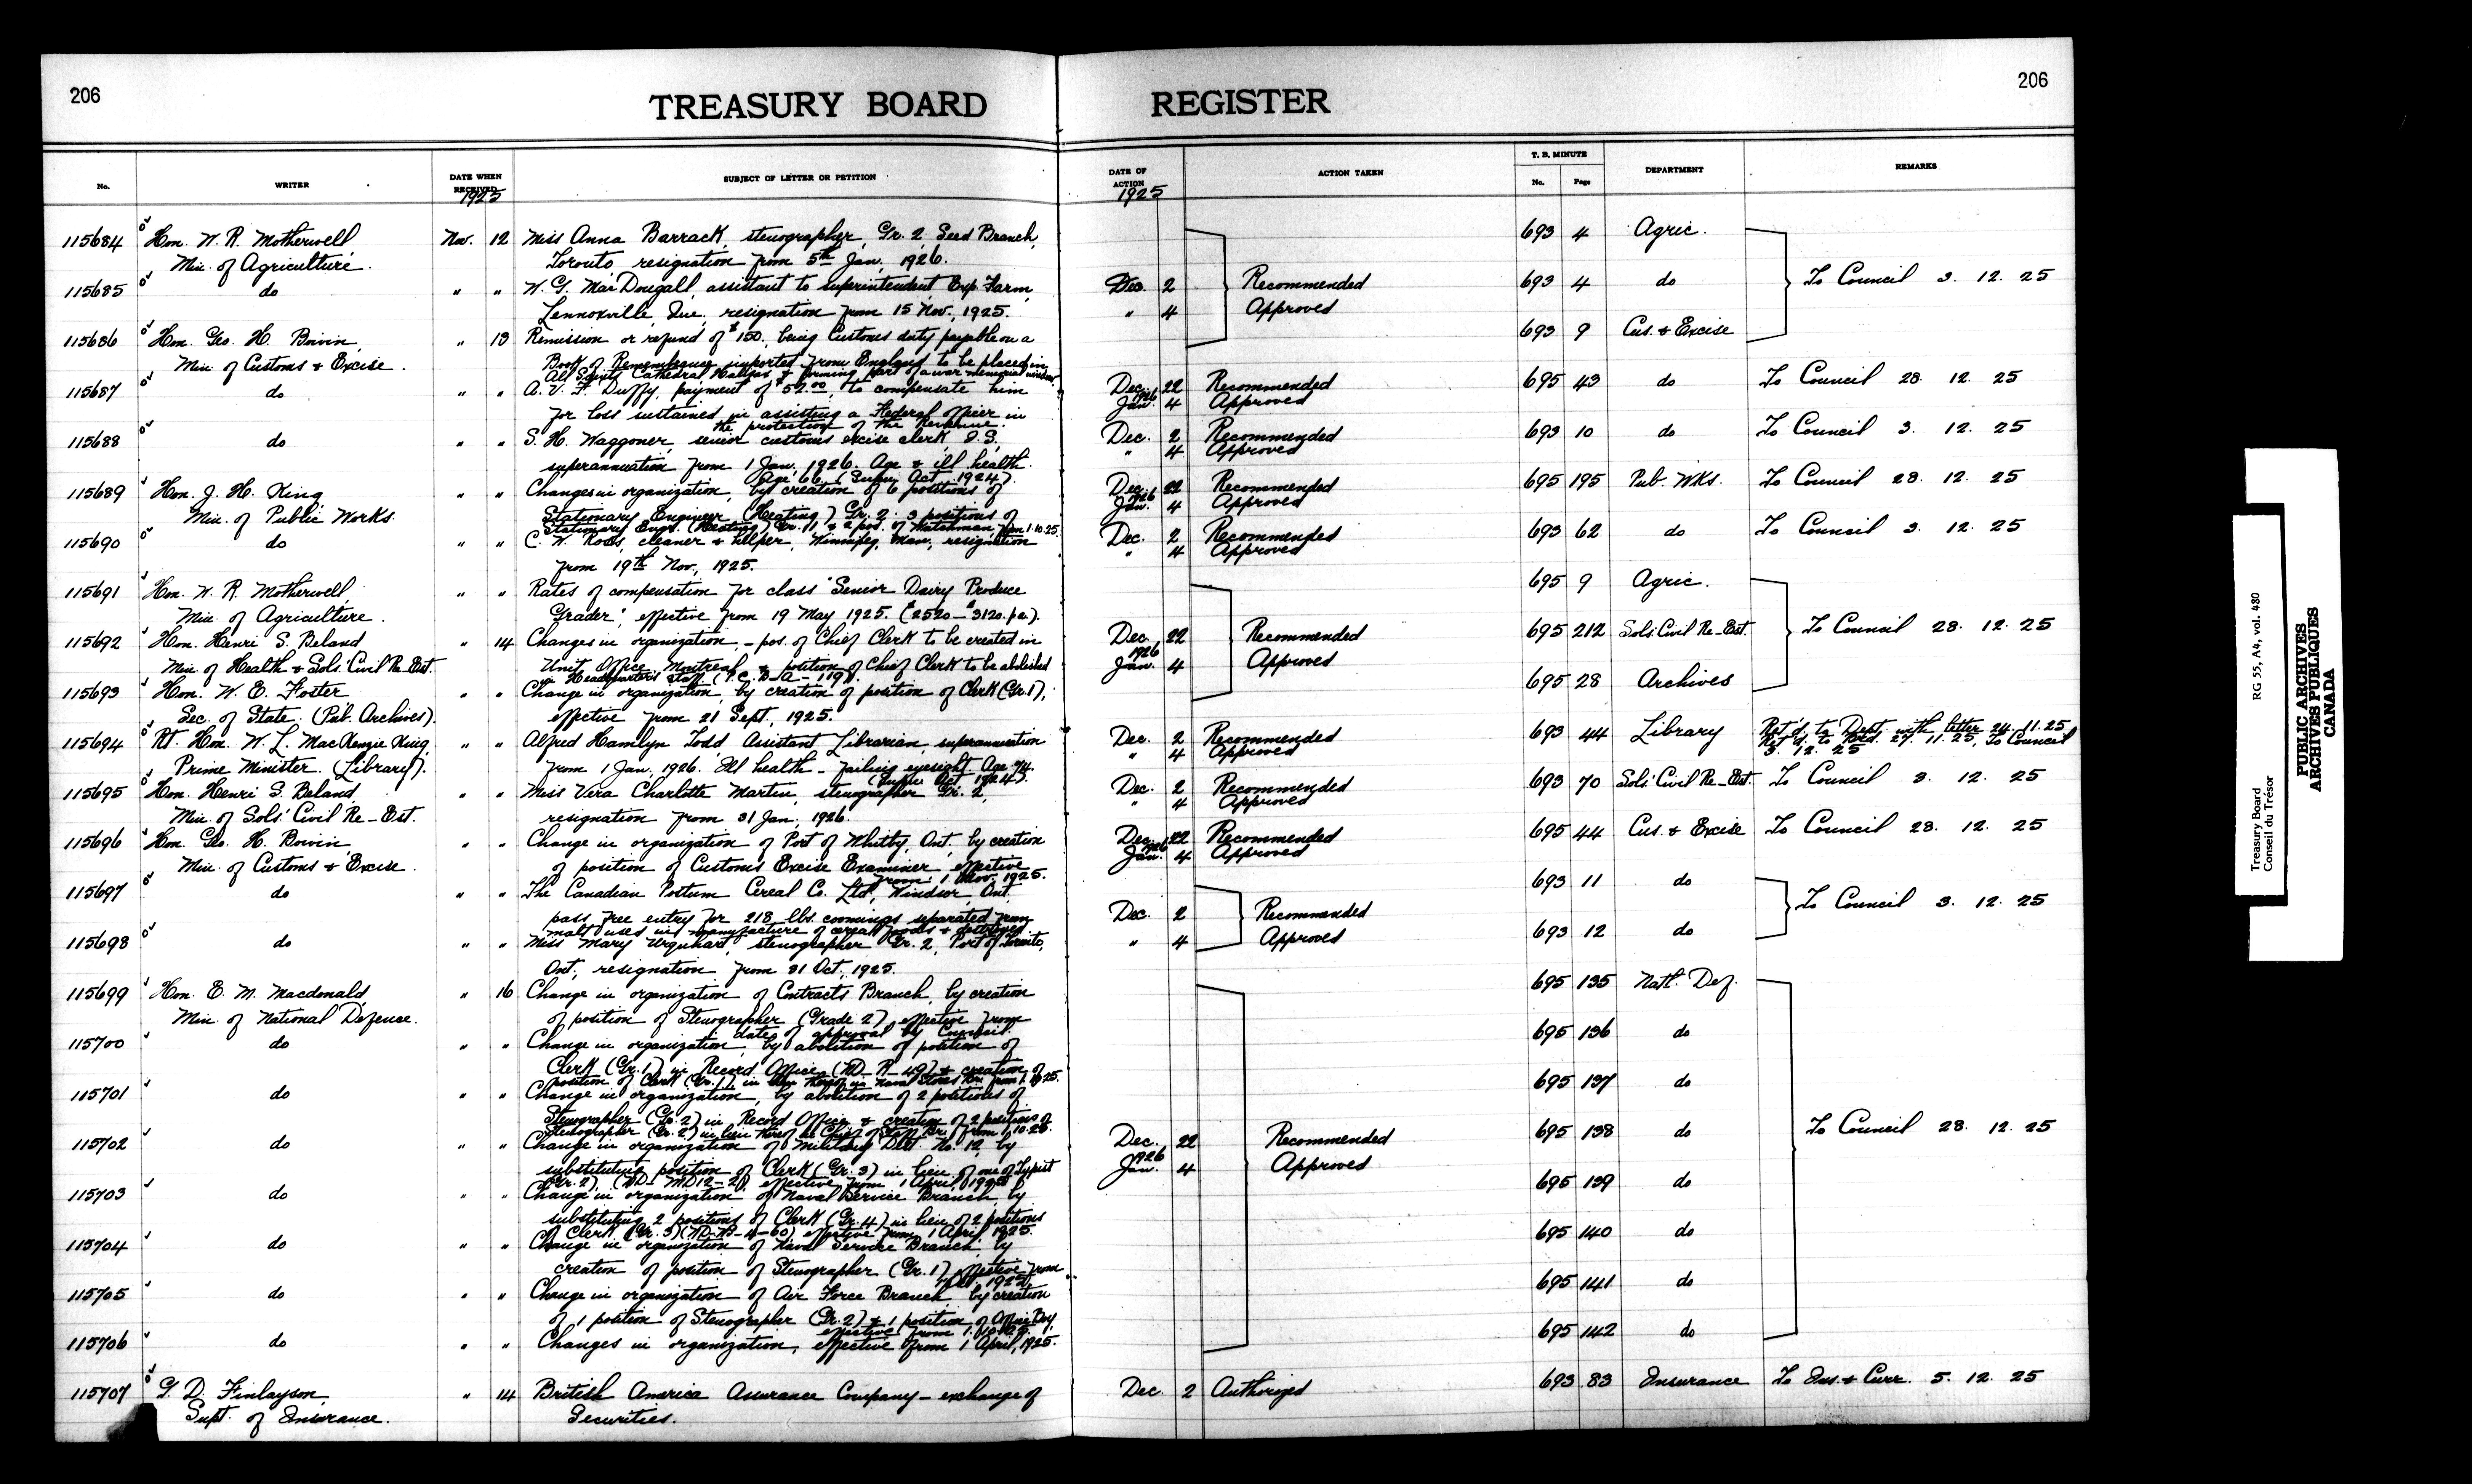 206
TREASURY BOARD REGISTER
206
No.
WRITER
DATE WHEN RECEIVED
1925
SUBJECT OF LETTER OR PETITION
DATE OF ACTION
1925
ACTION TAKEN
T. B. MINUTE
No. Page
DEPARTMENT
REMARKS
115684 Hon. W. R. Motherwell Nov. 12 Miss Anna Barrack, stenographer, Gr. 2, Seed Branch, 693 4 Agric.
Min. of Agriculture. Toronto, resignation from 5th Jan. 1926.
115685 do " " W. G. MacDougall, assistant to superintendent Exp. Farm, Dec. 2 Recommended 693 4 do To Council 3. 12. 25
Lennoxville, Que., resignation from 15 Nov., 1925. " 4 Approved
115686 Hon. Geo. H. Boivin, " 13 Remission or refund of $150, being Customs duty payable on a 693 9 Cus. & Excise
Min. of Customs & Excise. Book of Remembrance imported from England to be placed in
All Saints Cathedral Halifax & forming part of a war memorial window.
115687 do " " A. V. F. Duffy, payment of $52.00, to compensate him Dec. 22 Recommended 695 43 do To Council 28. 12. 25
for loss sustained in assisting a Federal officer in 1926 Jan. 4 Approved
the protection of the Revenue.
115688 do " " S. H. Waggoner, senior customs excise clerk, O.S., Dec. 2 Recommended 693 10 do To Council 3. 12. 25
superannuation from 1 Jan. 1926. Age & ill health. " 4 Approved
(Age 66) (Super. Act 1924).
115689 Hon. J. H. King, " " Changes in organization, by creation of 6 positions of Dec. 22 Recommended 695 195 Pub. Wks. To Council 28. 12. 25
Min. of Public Works. Stationary Engineer (Heating) Gr. 2: 3 positions of 1926 Jan. 4 Approved
Stationary Engr. (Heating) Gr. 1 & 2 pos. of Watchman, from 1.10.25.
115690 do " " C. W. Ross, cleaner & helper, Winnipeg, Man., resignation Dec. 2 Recommended 693 62 do To Council 3. 12. 25
from 19th Nov., 1925. " 4 Approved
115691 Hon. W. R. Motherwell, " " Rates of compensation for class "Senior Dairy Produce 695 9 Agric.
Min. of Agriculture. Grader", effective from 19 May 1925. ($2520 - $3120. p.a.).
115692 Hon. Henri S. Beland " 14 Changes in organization, - pos. of Chief Clerk to be created in Dec. 22 Recommended 695 212 Sols. Civil Re-Est. To Council 28. 12. 25
Min. of Health & Sols'. Civil Re-Est. Unit Office, Montreal & position of Chief Clerk to be abolished 1926 Jan. 4 Approved
in Headquarters Staff.
115693 Hon. W. E. Foster " " Change in organization, by creation of position of Clerk (Gr. 1), 695 28 Archives
Sec. of State. (Pub. Archives). effective from 21 Sept., 1925.
115694 Rt. Hon. W. L. MacKenzie King, " " Alfred Hamlyn Todd, Assistant Librarian, superannuation Dec. 2 Recommended 693 44 Library Ret'd. to Dept. with letter 24. 11. 25
Prime Minister. (Library). from 1 Jan. 1926. Ill health - failing eyesight. Age 74. " 4 Approved Ret'd. to Brd. 27. 11. 25, To Council
(Super. Act 1924). 3. 12. 25
115695 Hon. Henri S. Beland, " " Miss Vera Charlotte Martin, stenographer Gr. 2, Dec. 2 Recommended 693 70 Sols'. Civil Re-Est. To Council 3. 12. 25
Min. of Sols'. Civil Re-Est. resignation from 31 Jan., 1926. " 4 Approved
115696 Hon. Geo. H. Boivin, " " Change in organization of Port of Whitby, Ont., by creation Dec. 22 Recommended 695 44 Cus. & Excise To Council 28. 12. 25
Min. of Customs & Excise. of position of Customs Excise Examiner, effective 1926 Jan. 4 Approved
from 1 Nov. 1925.
115697 do " " The Canadian Postum Cereal Co. Ltd., Windsor, Ont. 693 11 do
pass free entry for 218 lbs. coomings separated from Dec. 2 Recommended To Council 3. 12. 25
malt used in manufacture of cereal foods & destroyed.
115698 do " " Miss Mary Urquhart, stenographer Gr. 2, Port of Toronto, " 4 Approved 693 12 do
Ont., resignation from 31 Oct., 1925.
115699 Hon. E. M. Macdonald, " 16 Change in organization of Contracts Branch, by creation 695 135 Natl. Def.
Min. of National Defence. of position of Stenographer (Grade 2), effective from
date of approval by Council.
115700 do " " Change in organization, by abolition of position of 695 136 do
Clerk (Gr. 1) in Record Office (ND-R-49) & creation of
position of Clerk (Gr. 1), in lieu thereof in Naval Stores
115701 do " " Change in organization, by abolition of 2 positions of 695 137 do
Stenographer (Gr. 2) in Record Office & creation of 2 positions of
Stenographer (Gr. 2) in lieu thereof in Chief of Staff Br. from 1.10.25.
115702 do " " Change in organization of Military Dist. No. 12, by Dec. 22 Recommended 695 138 do To Council 28. 12. 25
substituting position of Clerk (Gr. 3) in lieu of one of Typist 1926 Jan. 4 Approved
(Gr. 2), (ND-MD12-2), effective from 1 April, 1925.
115703 do " " Change in organization of Naval Service Branch, by 695 139 do
substituting 2 positions of Clerk (Gr. 4) in lieu of 2 positions
of Clerk (Gr. 3) effective from 1 April, 1925.
115704 do " " Change in organization of Naval Service Branch, by 695 140 do
creation of position of Stenographer (Gr. 1) effective from
115705 do " " Change in organization of Air Force Branch, by creation 695 141 do
of 1 position of Stenographer (Gr. 2) & 1 position of Office Boy,
effective from 1.10.25.
115706 do " " Changes in organization, effective from 1 April, 1925. 695 142 do
115707 G. D. Finlayson, " 14 British America Assurance Company - exchange of Dec. 2 Authorized 693 83 Insurance To Ins. & Curr. 5. 12. 25
Supt. of Insurance. Securities.
Treasury Board RG 55, A4, vol. 480
Conseil du Trésor
PUBLIC ARCHIVES
ARCHIVES PUBLIQUES
CANADA